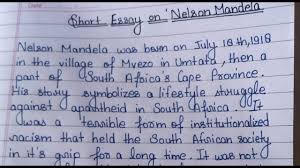 Short Essay on 'Nelson Mandela
Nelson Mandela was born on July 18th, 1918
in the village of Mvezo in Umtata, then a
part of South Africa's Cape Province.
His story symbolizes a lifestyle struggle
against apartheid in South Africa. It
was a tensible form of institutionalized
racism that held the South African society
in it's grip for a long time. It was not